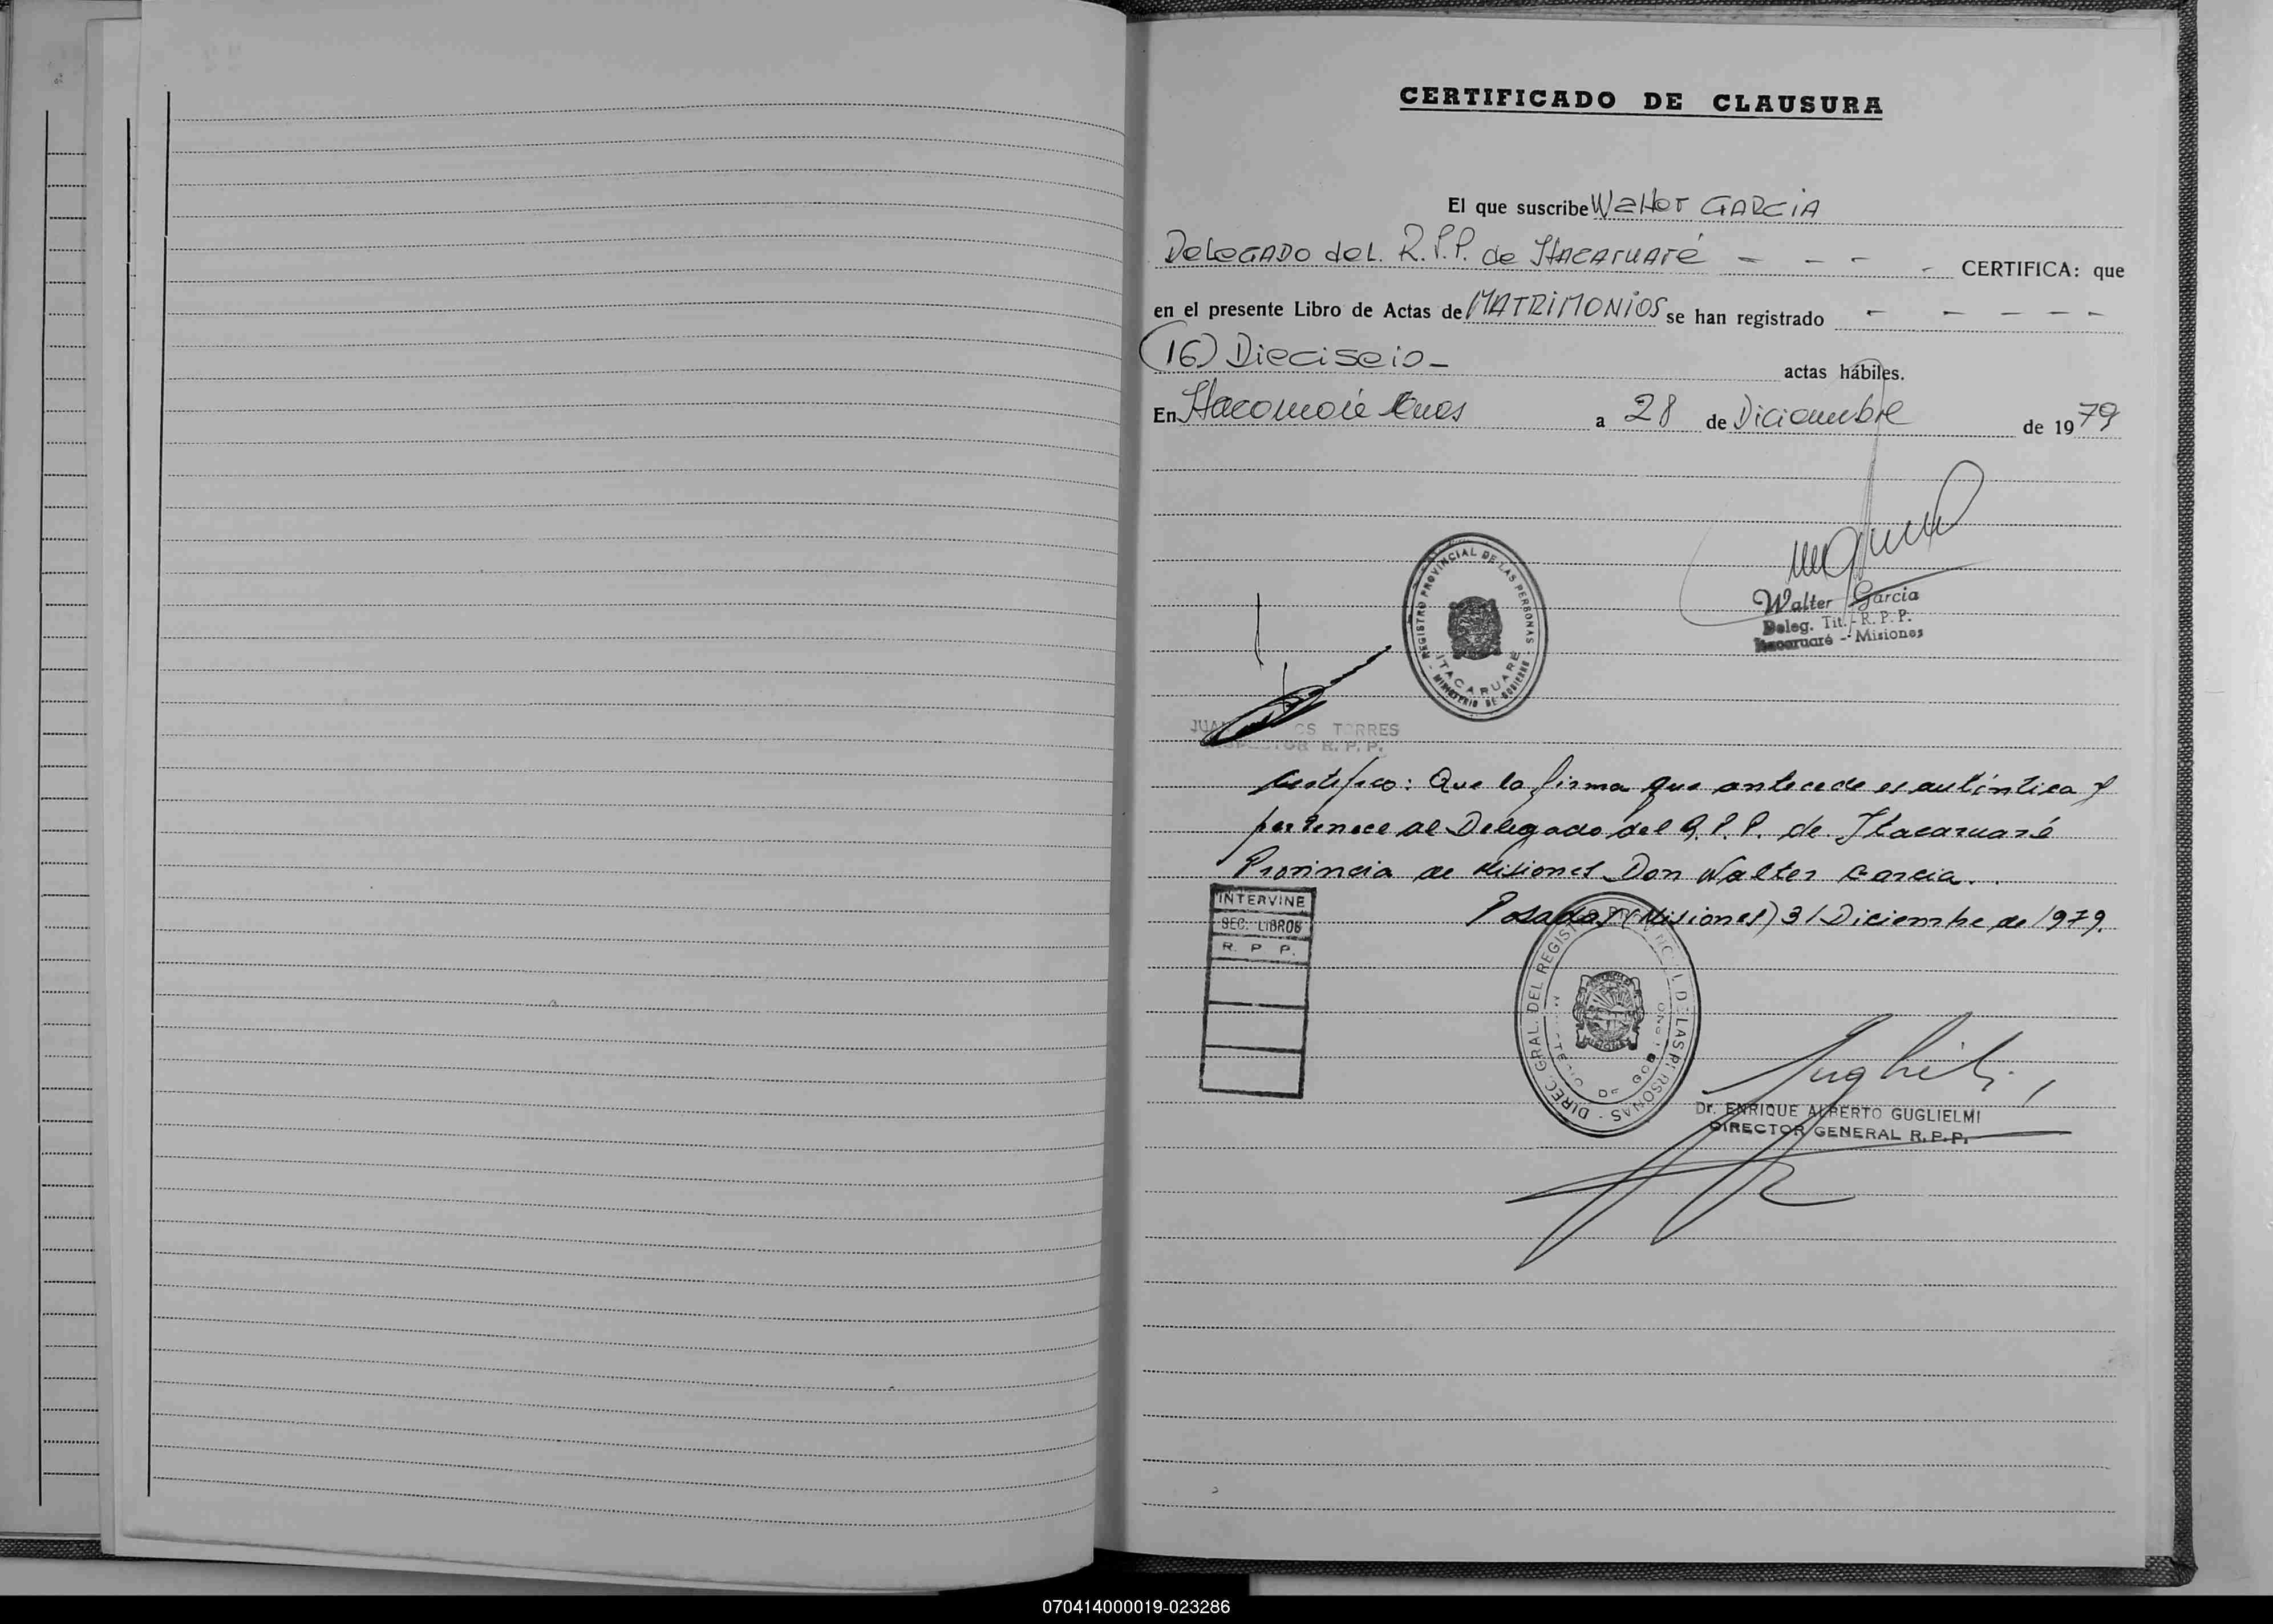 CERTIFICADO DE CLAUSURA
El que suscribe Walter GARCIA
DELEGADO del R.P.P. de ITACARUARÉ - - - - CERTIFICA: que
en el presente Libro de Actas de MATRIMONIOS se han registrado - - - - -
(16) Dieciseis -
actas hábiles.
En a 28 de Diciembre de 1979
REGISTRO PROVINCIAL DE LAS PERSONAS
ITACARUARÉ
MINISTERIO DE GOBIERNO
Walter Garcia
Deleg. Tit. - R. P. P.
Itacaruaré - Misiones
JUAN TORRES
INSPECTOR R. P. P.
Certifico: Que la firma que antecede es auténtica y
pertenece al Delegado del R.P.P. de Itacaruaré
Provincia de Misiones Don Walter Garcia.
Posadas (Misiones) 31 Diciembre de 1979.
INTERVINE
SEC. LIBROS
R. P. P.
DIREC. GRAL. DEL REGISTRO PROVINCIAL DE LAS PERSONAS
MINISTERIO DE GOBIERNO
MISIONES
Dr. ENRIQUE ALBERTO GUGLIELMI
DIRECTOR GENERAL R.P.P.
070414000019-023286